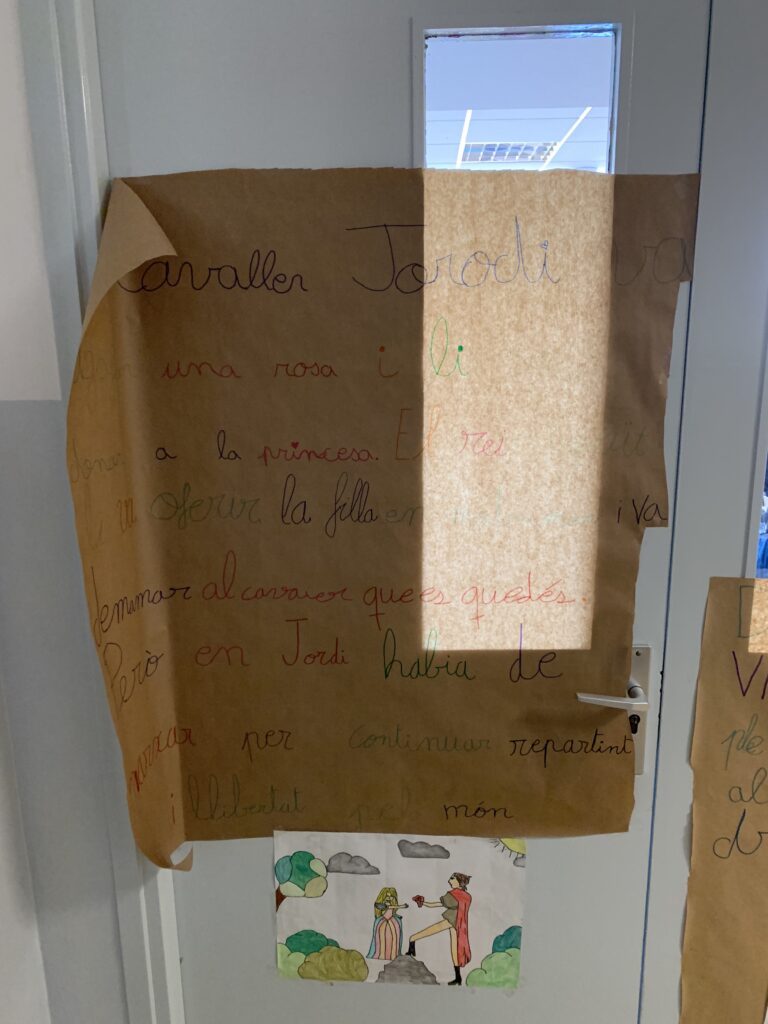 cavaller Jorodi va
una rosa i li
donar a la princesa. El rei
va oferir la filla en i va
demamar al cavaier que es quedés.
Però en Jordi habia de
marxar per continuar repartint
i llibertat pel món
D
VA
de
al
dr